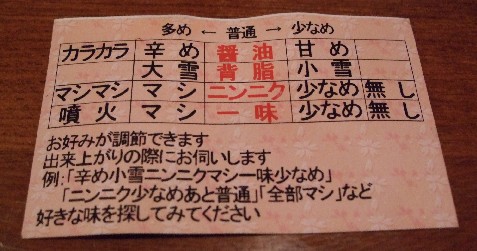 多め ← 普通 → 少なめ
カラカラ 辛め 醤油 甘め
大雪 背脂 小雪
マシマシ マシ ニンニク 少なめ 無し
噴火 マシ 一味 少なめ 無し
お好みが調節できます
出来上がりの際にお伺いします
例:「辛め小雪ニンニクマシ一味少なめ」
「ニンニク少なめあと普通」「全部マシ」など
好きな味を探してみてください